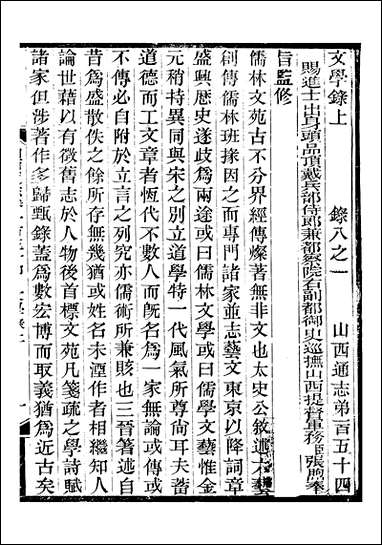 文學錄上 錄八之一 山西通志弟百五十四
賜進士出身頭品頂戴兵部侍郎兼都察院右副都御史巡撫山西提督軍務臣張煦奉
旨監修
儒林文苑古不分界經傳燦著無非文也太史公敘述六藝
創傳儒林班掾因之而專門諸家並志藝文東京以降詞章
盛興歷史遂歧為兩途或曰儒林文學或曰儒學文藝惟金
元稍特異同與宋之別立道學特一代風氣所尊尚耳夫蓄
道德而工文章者恆代不數人而旣名為一家無論或傳或
不傳必自附於立言之列究亦儒術所兼賅也三晉著述自
昔為盛散佚之餘所存無幾猶或姓名未湮作者相繼知人
論世藉以有徵舊志於人物後首標文苑凡箋疏之學詩賦
諸家但涉著作多歸甄錄蓋為數宏博而取義猶為近古矣